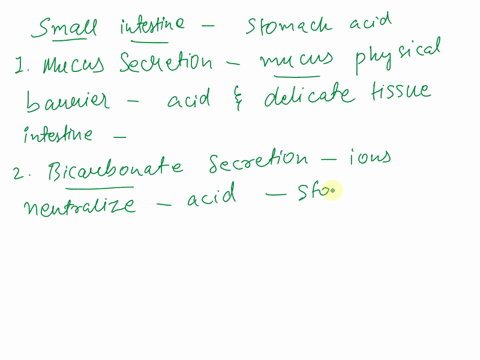 Small intestine - Stomach acid
1. Mucus Secretion - mucus physical
barrier - acid & delicate tissue
intestine -
2. Bicarbonate Secretion - ions
neutralize - acid - Sto